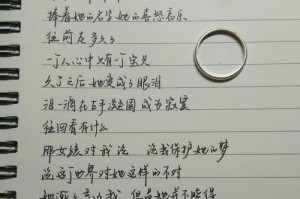 捧着她的名字她的喜怒哀乐
往前走多久了
一个人心中只有一个宝贝
久了之后她变成了眼泪
泪一滴在左手凝固成为寂寞
往回看有什么
那女孩对我说 说我保护她的梦
说这个世界对她这样的不多
她渐渐忘了我 但是她并不晓得